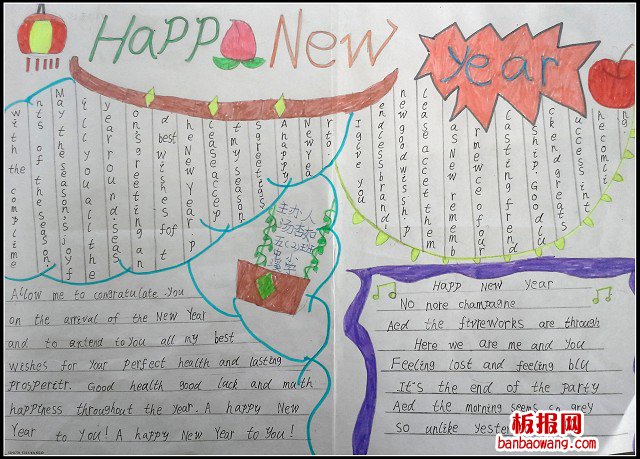 Happy New Year
with the complime
nts of the season
May the season's joy f
ill you all the
year round. seas
on's greeting an
d best wishes fof t
he New Year p
lease accep
t my season
s greetings.
A happy
New yea
r to
I give you
endless brand-
new good wish.p
lease accet them
as New rememb
our
lasting friend
ship. Good lu
ck and great s
uccess int
he comi
主办人
五(2)班
Allow me to congratulate you
on the arrival of the New Year
and to axtend to you all my best
wishes for your perfect health and lasting
prosperitr. Good health good lack and math
happiness throughout the year. A happy New
Year to you! A happy New Year to You!
Happ New Year
No nore champagne
Aed the fireworks are through
Here we are me and you
Feeling lost and feeling blu
It's the end of the party
Aed the morning seems so grey
So unlike yester
板报网
banbaowang.com